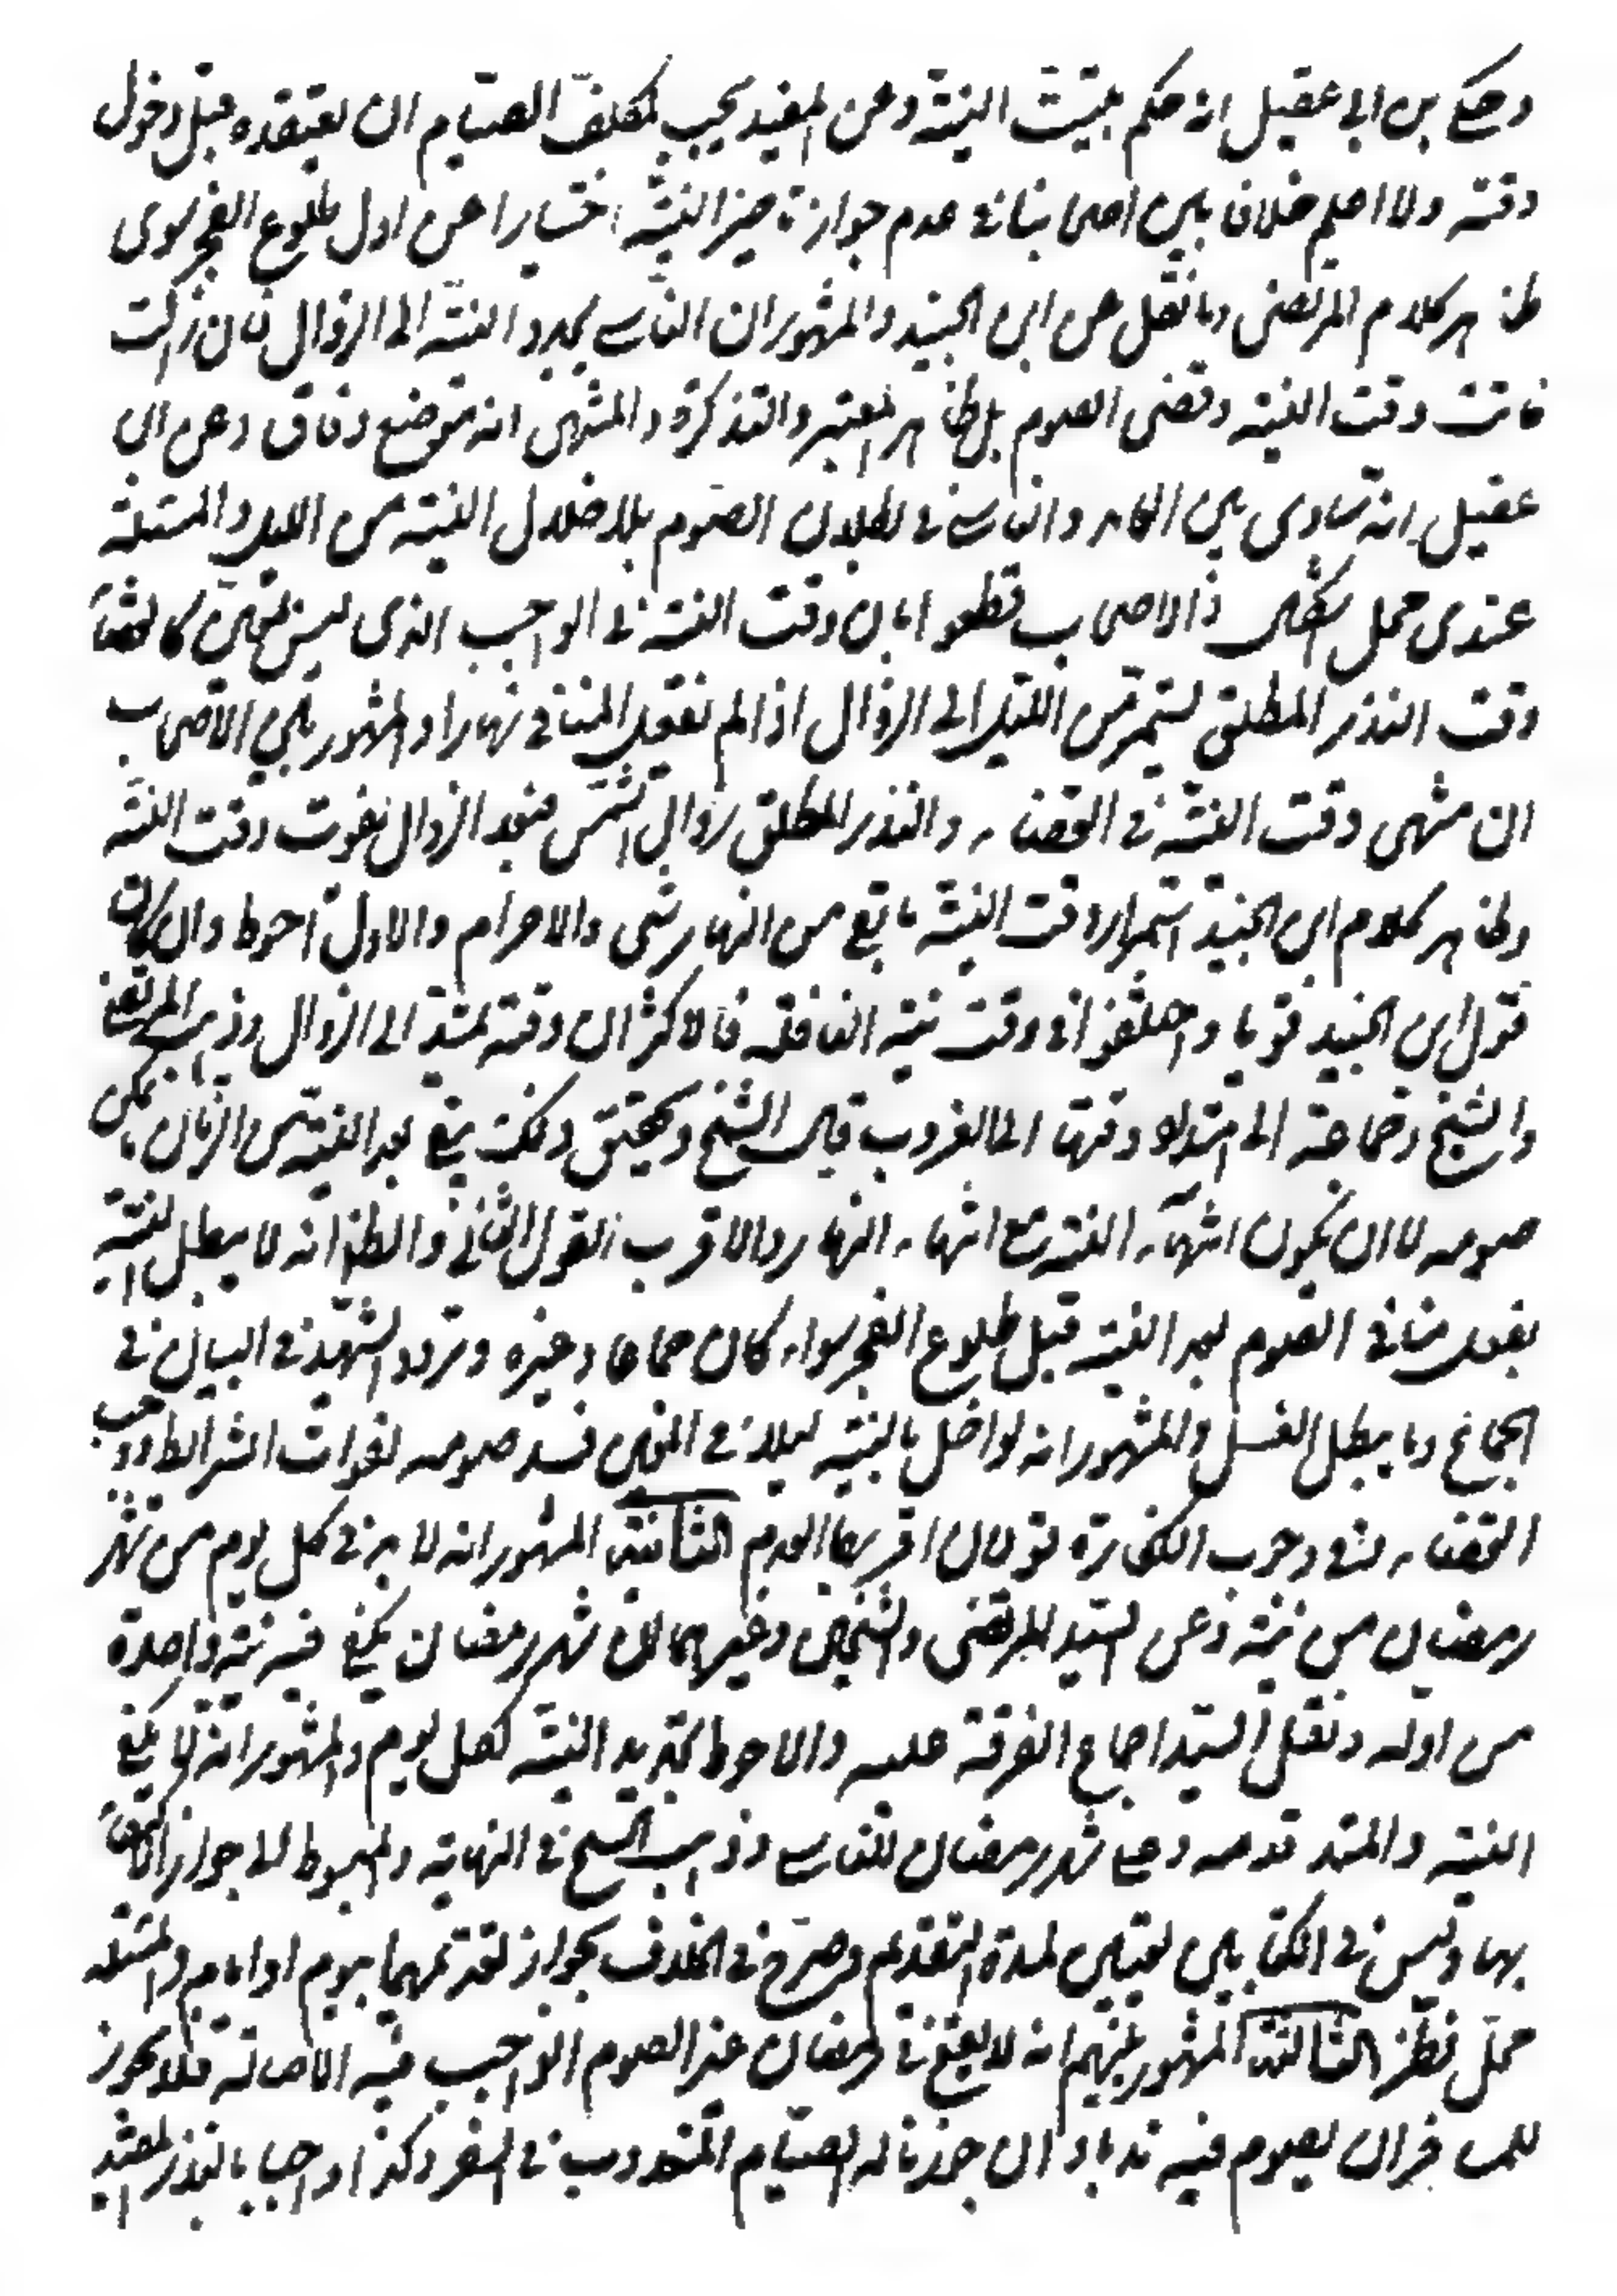 وحكى بن ابى عقيل انه حكم بتبييت النية وعن المفيد يجب لمكلف الصيام ان يعتقده قبل دخول
وقته ولا اعلم خلافا بين اصحابنا فى عدم جواز تاخير النية اختيارا عن اول طلوع الفجر سوى
ظاهر كلام المرتضى وما نقل عن ابن الجنيد والمشهور ان الناسى يجدد النية الى الزوال فان زالت
فاتت وقت النية وقضى الصوم بل ظاهر المعتبر والتذكرة والمنتهى انه موضع وفاق وعن ابن
عقيل انه ساوى بين العامد والناسى فى بطلان الصوم بالاخلال النية من الليل والمسئلة
عندى محل اشكال ذ الاصحاب قطعوا بان وقت النية فى الواجب الذى ليس بمعين كالقضاء
وقت النذر المطلق يستمر من الليل الى الزوال اذا لم يفعل المنافى نهارا والمشهور بين الاصحاب
ان منتهى وقت النية فى القضاء والنذر المطلق زوال الشمس فبعد الزوال يفوت وقت النية
وظاهر كلام ابن الجنيد استمرار وقت النية ما بقى من النهار شى والاحرام والاول احوط وان كان
قول ابن الجنيد قويا واختلفوا فى وقت نية النافلة فالاكثر ان وقته يمتد الى الزوال وذهب المرتضى
والشيخ وجماعة الى امتداد وقتها الى الغروب قال الشيخ وتحقيق ذلك يبقى بعد النية من الزمان ما يمكن
صومه لا ان يكون انتهاء النية مع انتهاء النهار والاقرب القول الثانى والظ انه لا يبطل النية
بفعل منافى الصوم بعد النية قبل طلوع الفجر سواء كان جماعا وغيره وتردد الشهيد فى البيان فى
الجماع وما يبطل الغسل والمشهور انه لو اخل بالنية ليلا فى المعين فسد صومه لفوات الشرائط ووجب
القضاء وفى وجوب الكفارة قولان اقربهما العدم الثانية المشهور انه لا بد فى كل يوم من شهر
رمضان من نية وعن السيد المرتضى والشيخين وغيرهما ان شهر رمضان يكفى فيه نية واحدة
من اوله ونقل السيد اجماع الفرقة عليه والاحوط تجديد النية لكل يوم والمشهور انه لا يكفى
النية والمتقدمه وعلى شهر رمضان للناسى وذهب الشيخ فى النهاية والمبسوط الى جواز الاكتفاء
بها وليس فى الكتابين تعيين لمدة التقديم وصرح فى الخلاف بجواز تقديمهما بيوم او ايام والمسئلة
محل نظر الثالثة المشهور بينهم انه لا يقع فى رمضان غير الصوم الواجب فيه الاصالة فلا يجوز
للمسافر ان يصوم فيه ندبا وان جوزنا له الصيام المندوب فى السفر وكذا واجبا بالنذر المقيد